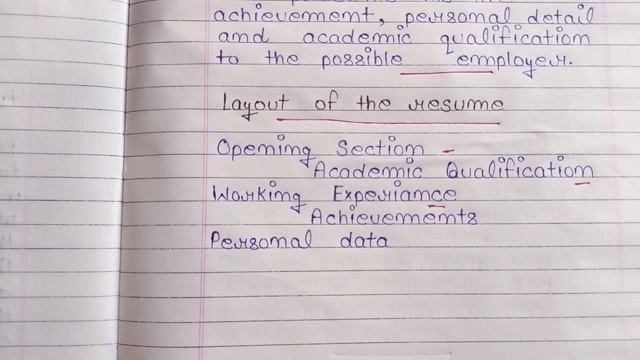 achievement, personal detail
and academic qualification
to the possible employer.
Layout of the resume
Opening Section -
Academic Qualification
Working Experiance
Achievements
Personal data